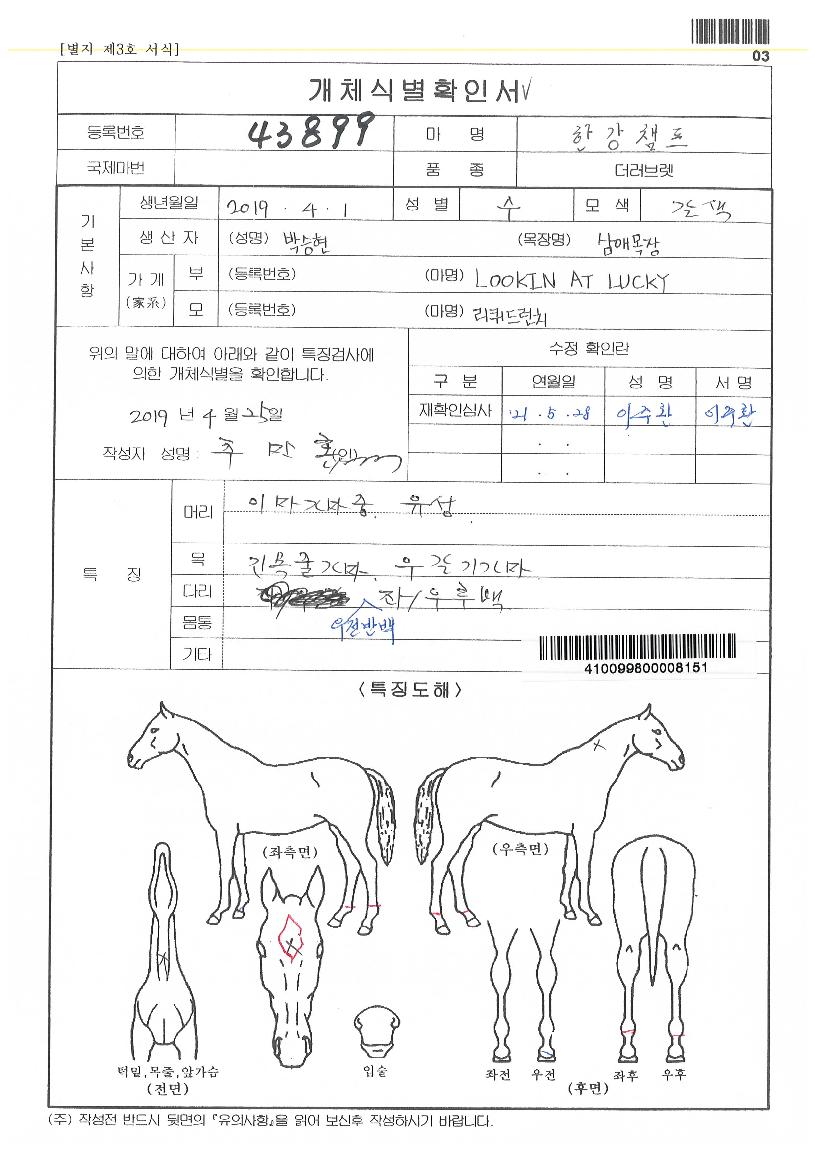 [별지 제3호 서식]
03
개체식별확인서√
등록번호 43899 마 명 한강챔프
국제마번 품 종 더러브렛
기본사항
생년월일 2019 . 4 . 1 성 별 수 모 색 갈색
생 산 자 (성명) 박승현 (목장명) 남애목장
가 계 (家系) 부 (등록번호) (마명) LOOKIN AT LUCKY
모 (등록번호) (마명) 리퀴드런치
위의 말에 대하여 아래와 같이 특징검사에
의한 개체식별을 확인합니다.
2019 년 4 월 25일
작성자 성명 : 주 만 홍 (인)
수정 확인란
구 분 연월일 성 명 서 명
재확인심사 '21 . 5 . 28 이주환 이주환
. .
. .
특 징
머리 이마가마중, 유성
목 긴목줄가마, 우갈기가마
다리 좌/우후백
우전반백
몸통
기타
410099800008151
<특징도해>
(좌측면) (우측면)
턱밑,목줄,앞가슴
(전면)
입술
좌전 우전 좌후 우후
(후면)
(주) 작성전 반드시 뒷면의 『유의사항』을 읽어 보신후 작성하시기 바랍니다.